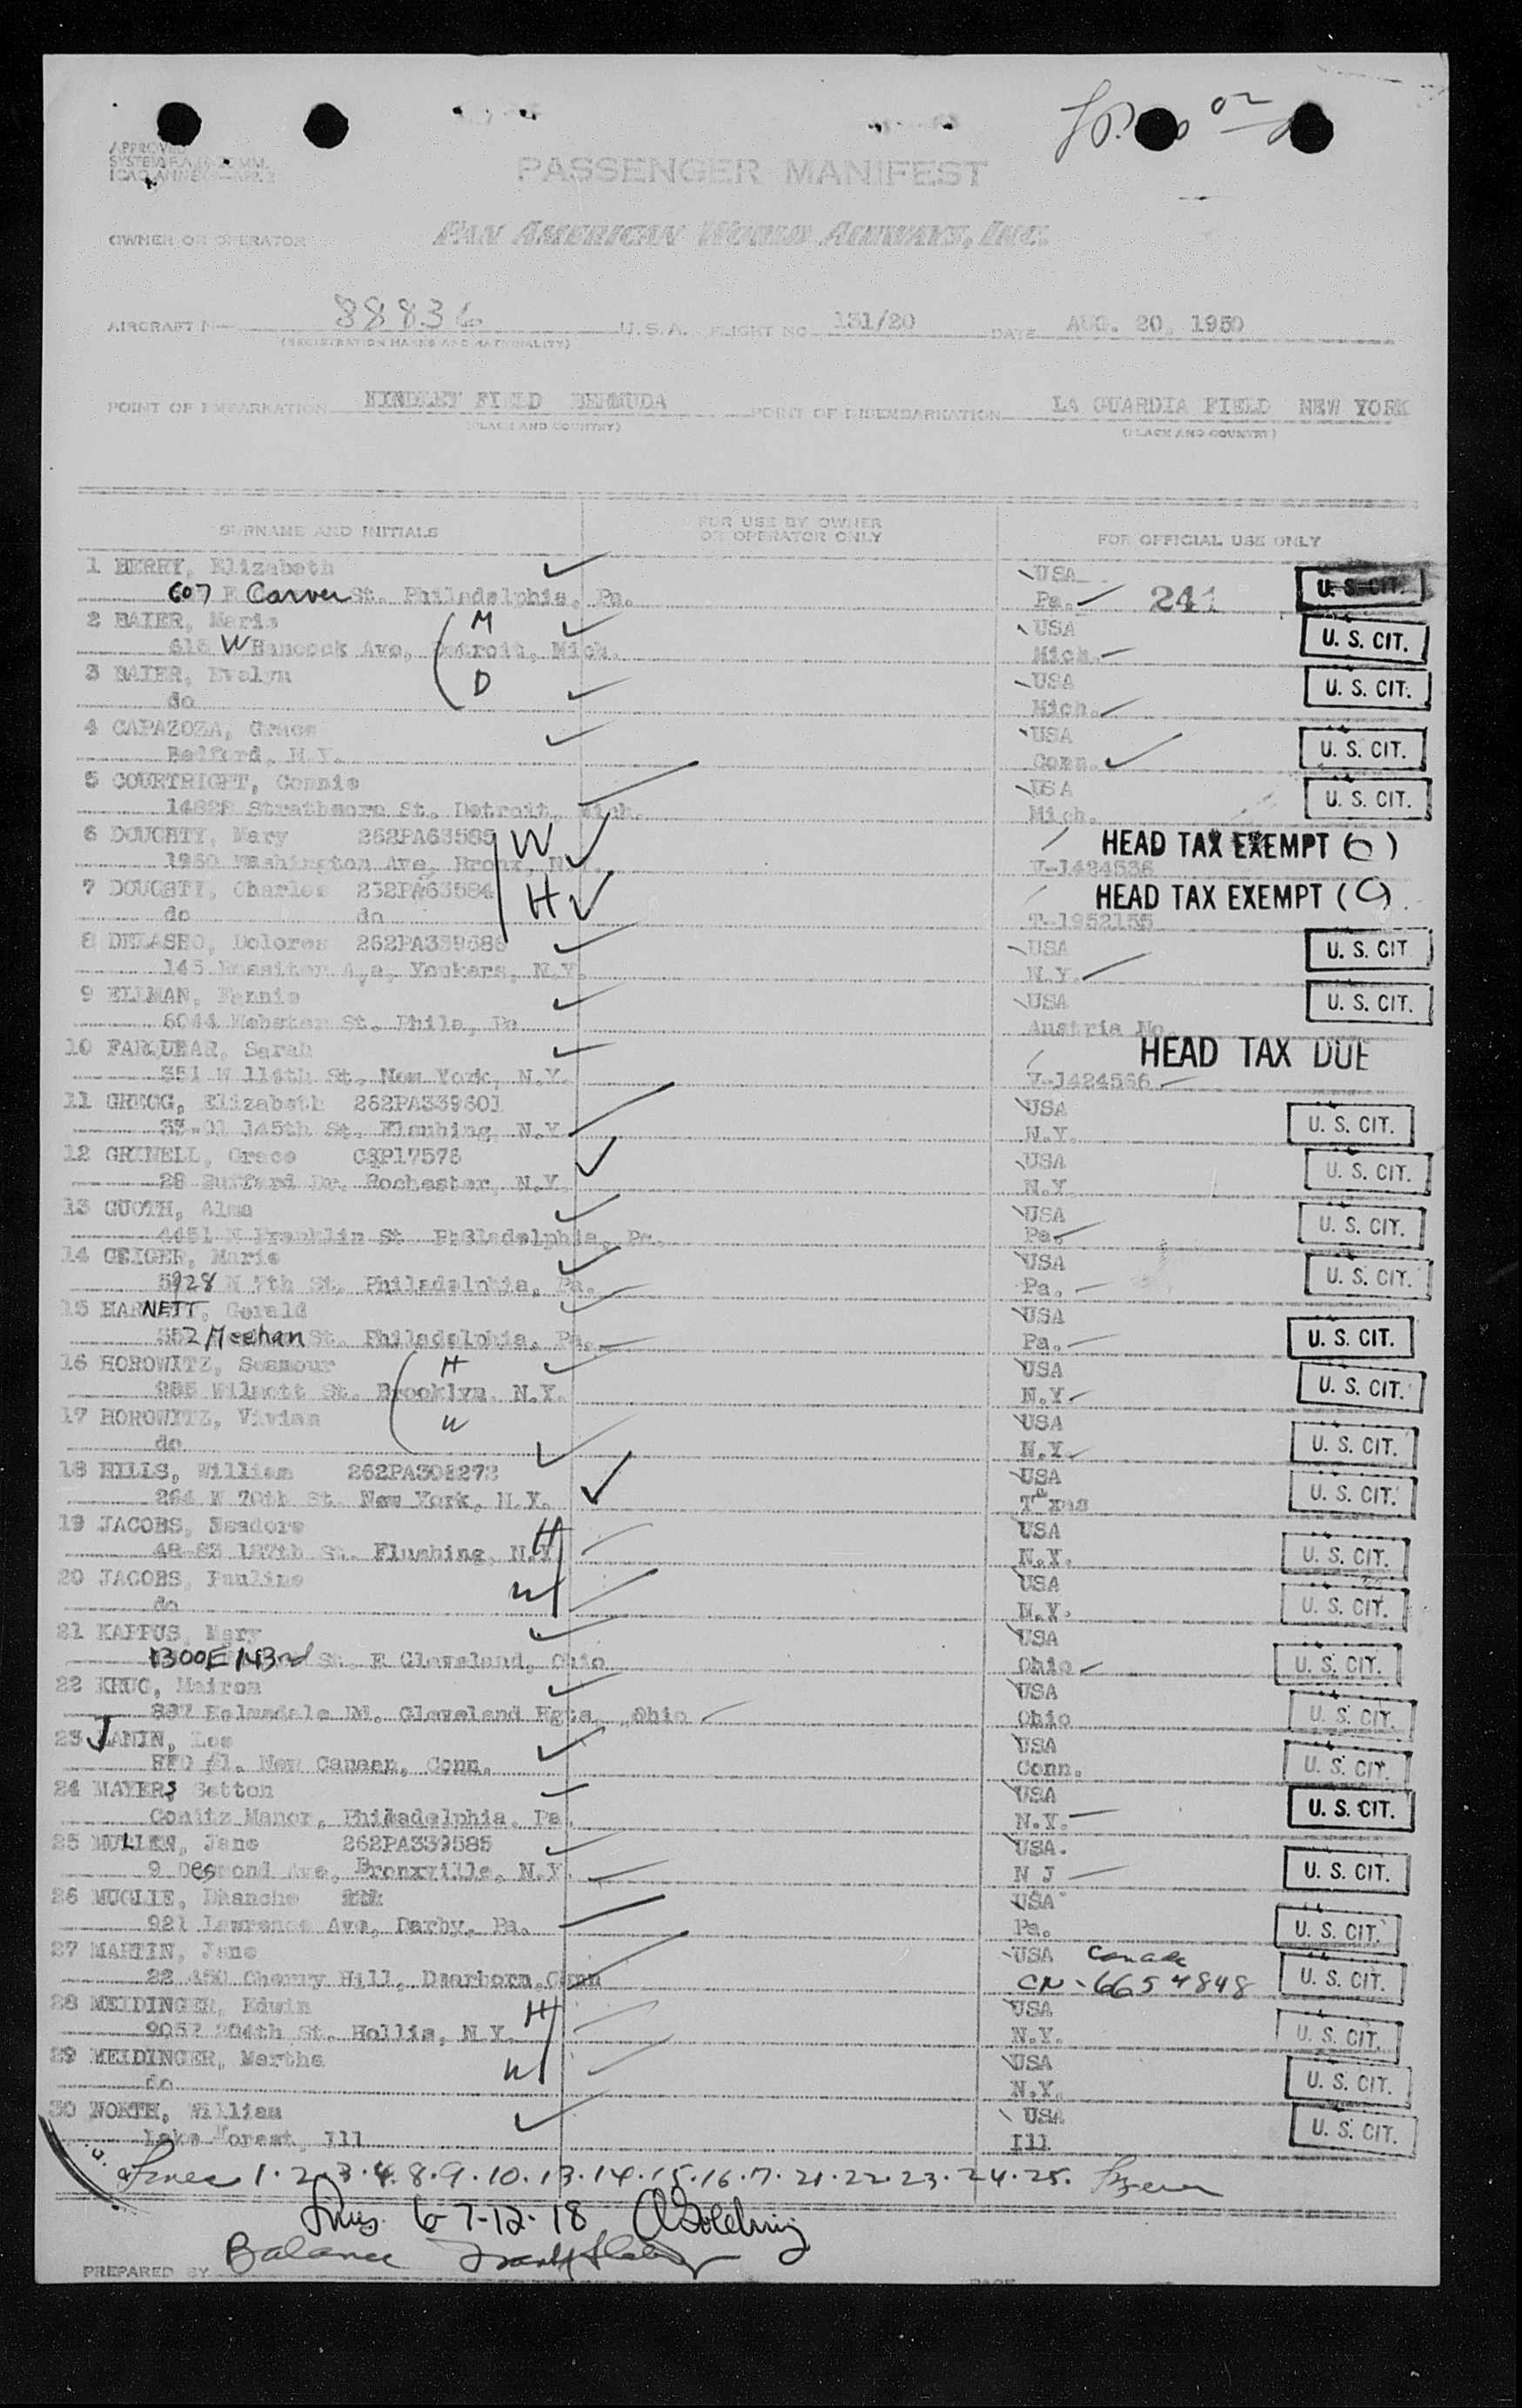 APPROVED
PASSENGER MANIFEST
OWNER OR OPERATOR PAN AMERICAN WORLD AIRWAYS, INC.
AIRCRAFT N— 88836 U.S.A. FLIGHT NO 131/20 DATE AUG. 20, 1950
(REGISTRATION MARKS AND NATIONALITY)
POINT OF EMBARKATION KINDLEY FIELD BERMUDA POINT OF DISEMBARKATION LA GUARDIA FIELD NEW YORK
(PLACE AND COUNTRY) (PLACE AND COUNTRY)
SURNAME AND INITIALS FOR USE BY OWNER OR OPERATOR ONLY FOR OFFICIAL USE ONLY
1 BERRY, Elizabeth USA
607 E Carver St. Philadelphia, Pa. Pa. 241 U. S. CIT.
2 BAIER, Marie M USA
W Hancock Ave, Detroit, Mich. Mich. U. S. CIT.
3 BAIER, Evelyn D USA
do Mich. U. S. CIT.
4 CAPAZOZA, Grace USA
Bedford, N.Y. Conn. U. S. CIT.
5 COURTRIGHT, Connie USA
Strathmore St. Detroit, Mich. Mich. U. S. CIT.
6 DOUGHTY, Mary 262PA63585 W HEAD TAX EXEMPT
Washington Ave, Bronx, N.Y. V-1424536
7 DOUGHTY, Charles 232PA63584 H HEAD TAX EXEMPT
do do T-1952155
8 Dolores USA
145 Rossiter Ave, Yonkers, N.Y. N.Y. U. S. CIT
9 ELLMAN, Fannie USA
6044 Webster St. Phila, Pa Austria No. U. S. CIT.
10 FARQUHAR, Sarah HEAD TAX DUE
351 W 114th St. New York, N.Y. V-1424566
11 GREGG, Elizabeth 262PA339601 USA
145th St. Flushing, N.Y. N.Y. U. S. CIT.
12 GRINELL, Grace USA
Dr. Rochester, N.Y. N.Y. U. S. CIT.
13 GUOTH, Alma USA
4451 N Franklin St Philadelphia, Pa. Pa. U. S. CIT.
14 GEIGER, Marie USA
5928 N 7th St. Philadelphia, Pa. Pa. U. S. CIT.
15 HARNETT, Gerald USA
352 Meehan St. Philadelphia, Pa. Pa. U. S. CIT.
16 HOROWITZ, Seamour H USA
St. Brooklyn, N.Y. N.Y. U. S. CIT.
17 HOROWITZ, Vivian W USA
do N.Y. U. S. CIT.
18 HILLS, William USA
264 W 70th St. New York, N.Y. Texas U. S. CIT.
19 JACOBS, Isadore H USA
187th St. Flushing, N.Y. N.Y. U. S. CIT.
20 JACOBS, Pauline W USA
do N.Y. U. S. CIT.
21 KAPPUS, Mary USA
1300 E 143rd St. E Cleveland, Ohio Ohio U. S. CIT.
22 KRUG, USA
Rd. Cleveland Hgts, Ohio Ohio U. S. CIT.
23 JANIN, Lee USA
RFD #1. New Canaan, Conn. Conn. U. S. CIT.
24 MAYERS USA
Manor, Philadelphia, Pa. N.Y. U. S. CIT.
25 MULLEN, Jane 262PA339585 USA.
9 Desmond Ave, Bronxville, N.Y. N J U. S. CIT.
26 USA
921 Lawrence Ave, Darby, Pa. Pa. U. S. CIT.
27 MARTIN, Jane USA Canada
22 450 Cherry Hill, Dearborn, Conn CN-6654848 U. S. CIT.
28 MEIDINGER, Edwin H USA
204th St. Hollis, N.Y. N.Y. U. S. CIT.
29 MEIDINGER, Martha W USA
do N.Y. U. S. CIT.
30 NORTH, William USA
Lake Forest, Ill Ill U. S. CIT.
Lines 1.2.3.4.8.9.10.13.14.15.16.17.21.22.23.24.25.
Lines 6-7-12-18
Balance
PREPARED BY